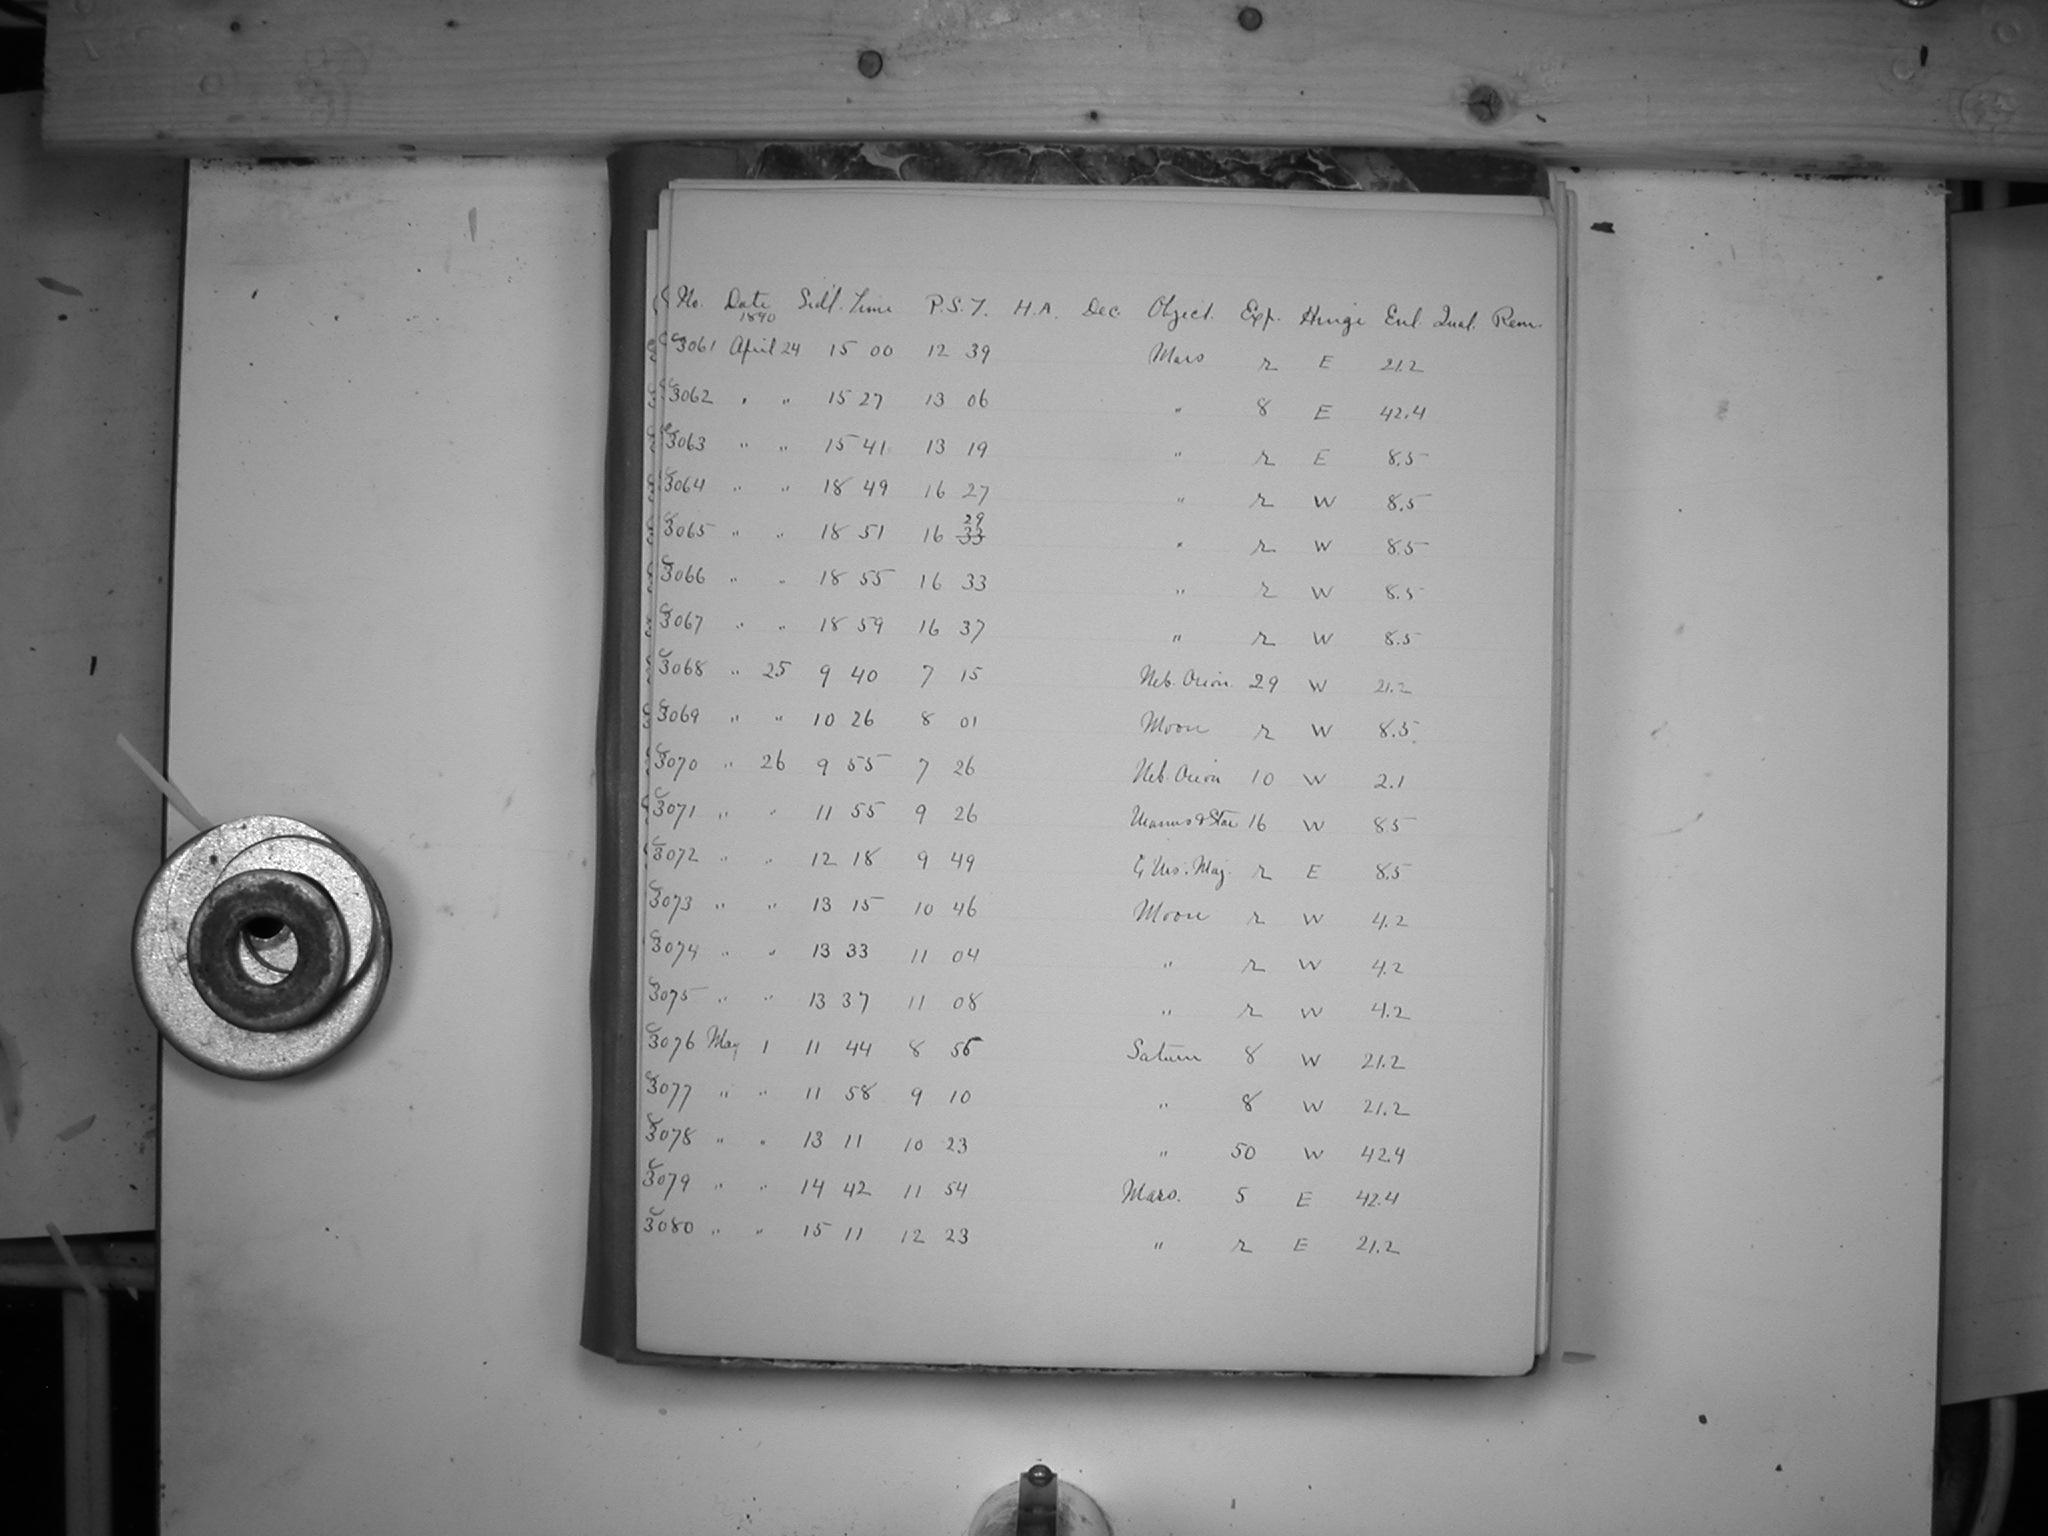 No. Date Sidl. Time P.S.T. H.A. Dec. Object. Exp. Hinge Enl. Qual. Rem.
1890
C3061 April 24 15 00 12 39 Mars r E 21.2
C3062 " " 15 27 13 06 " 8 E 42.4
C3063 " " 15 41 13 19 " r E 8.5
C3064 " " 18 49 16 27 " r W 8.5
29
C3065 " " 18 51 16 33 " r W 8.5
C3066 " " 18 55 16 33 " r W 8.5
C3067 " " 18 59 16 37 " r W 8.5
C3068 " 25 9 40 7 15 Neb. Orion. 29 W 21.2
C3069 " " 10 26 8 01 Moon r W 8.5
C3070 " 26 9 55 7 26 Neb. Orion 10 W 2.1
C3071 " " 11 55 9 26 Uranus & Star 16 W 8.5
C3072 " " 12 18 9 49 ζ Urs. Maj. r E 8.5
C3073 " " 13 15 10 46 Moon r W 4.2
C3074 " " 13 33 11 04 " r W 4.2
C3075 " " 13 37 11 08 " r W 4.2
C3076 May 1 11 44 8 56 Saturn 8 W 21.2
C3077 " " 11 58 9 10 " 8 W 21.2
C3078 " " 13 11 10 23 " 50 W 42.4
C3079 " " 14 42 11 54 Mars. 5 E 42.4
C3080 " " 15 11 12 23 " r E 21.2